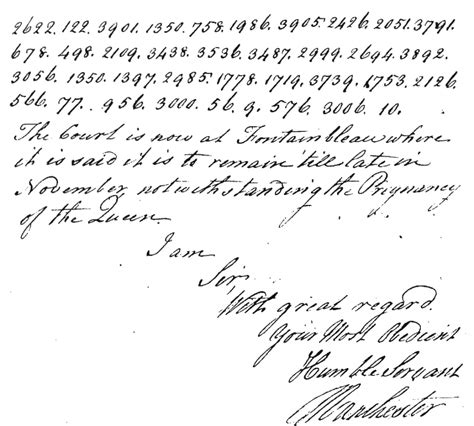 2622. 122. 3901. 1350. 758. 1986. 3905. 2426. 2051. 3791.
678. 498. 2109. 3438. 3536. 3487. 2999. 2694. 3892.
3056. 1350. 1397. 2985. 1778. 1719. 3739. 1753. 2126.
566. 77. 956. 3000. 56. 9. 576. 3006. 10.
The Court is now at Fontainbleau where
it is said it is to remain till late in
November notwithstanding the Pregnancy
of the Queen.
I am
Sir,
With great regard.
Your Most Obedient
Humble Servant
Manchester